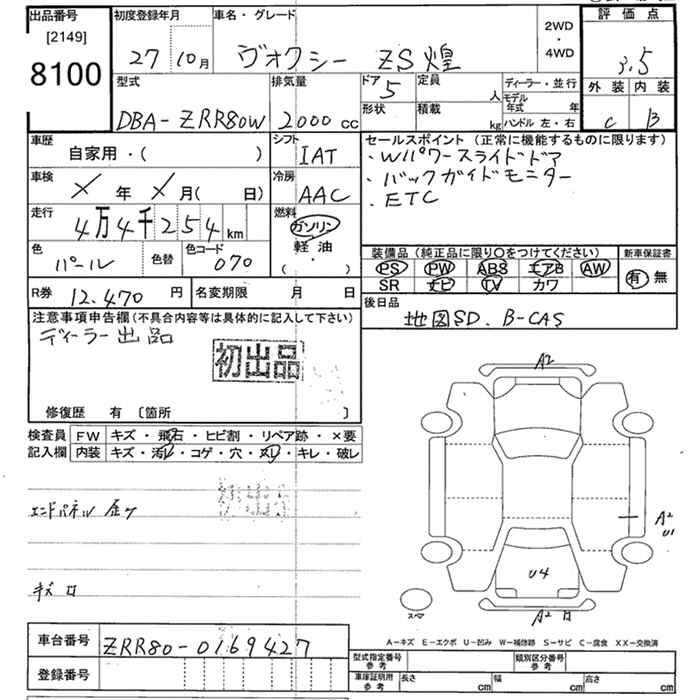 出品番号 初度登録年月 車名・グレード 評価点
[2149]
8100
27 10月 ヴォクシー ZS煌 2WD・4WD 3.5
外装 内装
C B
型式 排気量 ドア 定員 ディーラー・並行
DBA-ZRR80W 2000cc 5 人 モデル年式 年
形状 積載 kg ハンドル 左・右
車歴 自家用・( ) シフト IAT
セールスポイント (正常に機能するものに限ります)
・Wパワースライドドア
・バックガイドモニター
・ETC
車検 × 年 × 月( 日) 冷房 AAC
走行 4万4千254km 燃料 ガソリン
軽油・( )
色 パール 色替 色コード 070
装備品 (純正品に限り○をつけてください) 新車保証書
PS PW ABS エアB AW 有 無
SR ナビ TV カワ
R券 12,470円 名変期限 月 日
後日品 地図SD. B-CAS
注意事項申告欄 (不具合内容等は具体的に記入して下さい)
ディーラー出品
初出品
修復歴 有 〔箇所 〕
検査員記入欄 FW キズ・飛石・ヒビ割・リペア跡・×要
内装 キズ・汚レ・コゲ・穴・スレ・キレ・破レ
エンドパネル
A2
A2
U1
U4
A2
A-キズ E-エクボ U-凹み W-補修跡 S-サビ C-腐食 XX-交換済
車台番号 ZRR80-0169427
登録番号
型式指定番号 参考 類別区分番号 参考
車庫証明用 参考 長さ cm 幅 cm 高さ cm